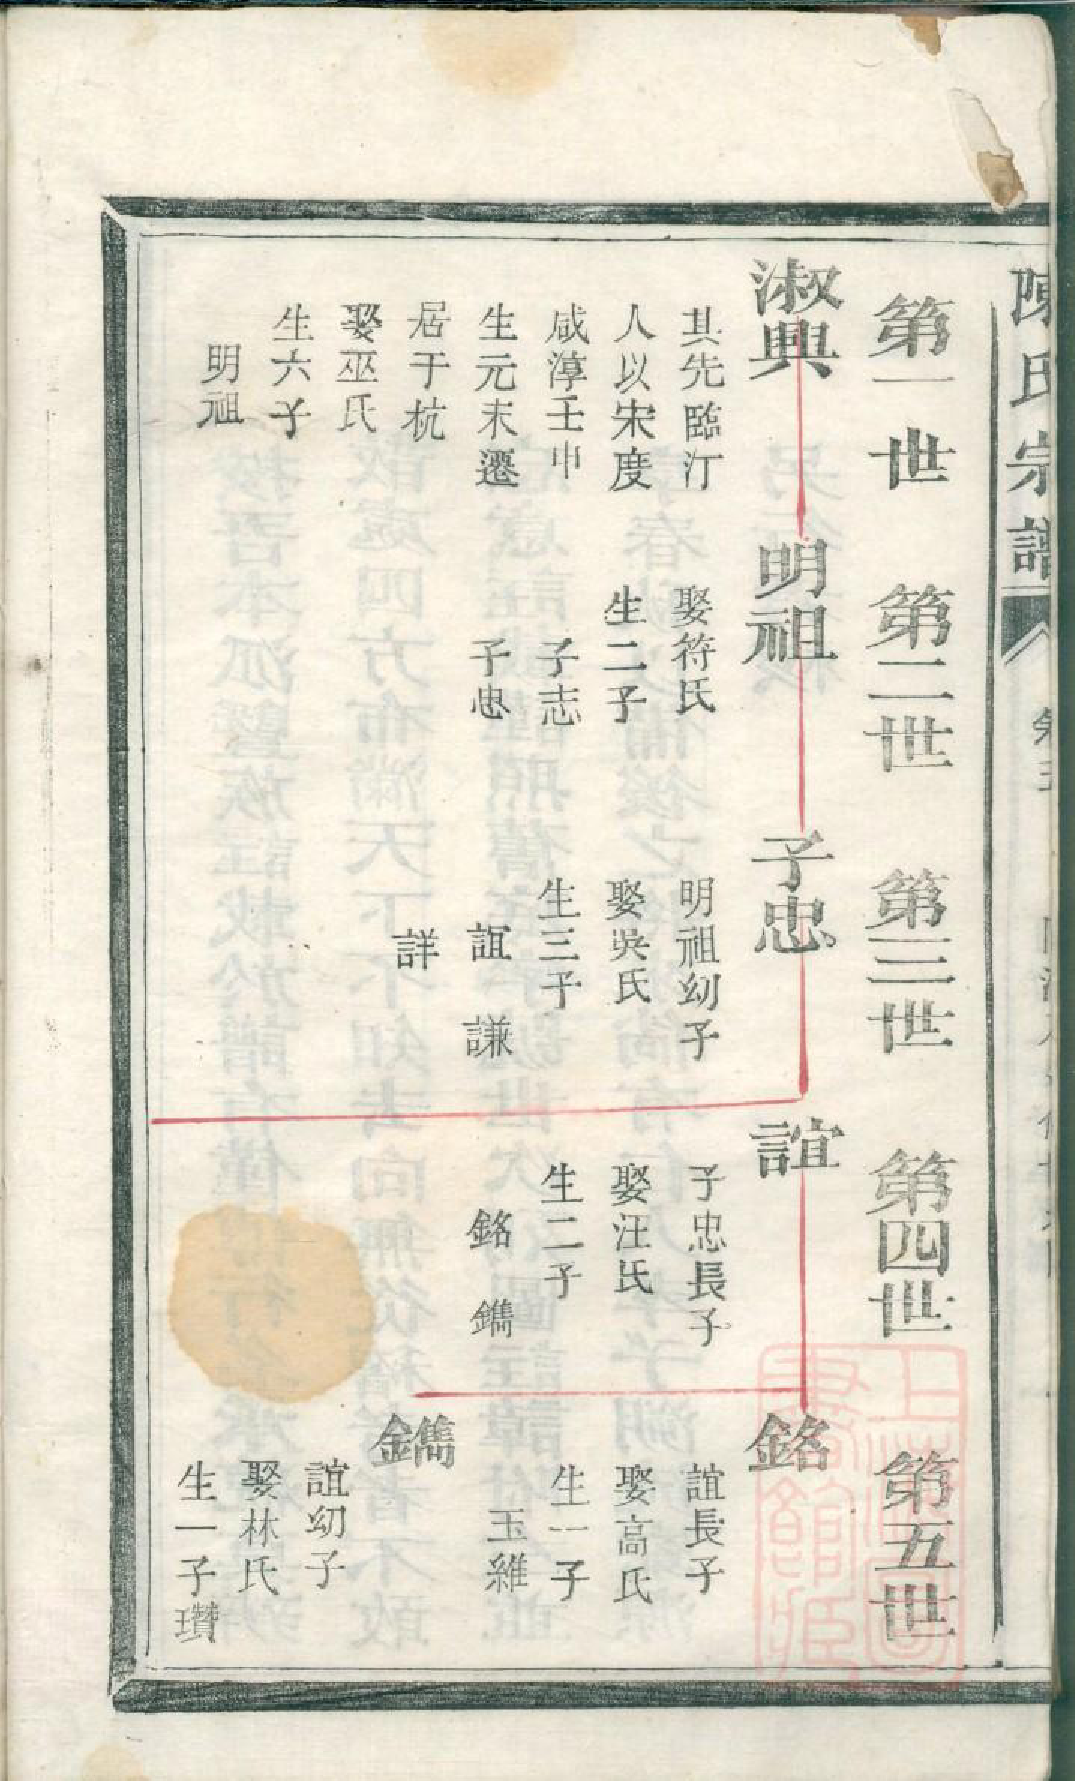 陳氏宗譜
第一世
第二世
第三世
第四世
第五世
淑興
其先臨汀
人以宋度
咸淳壬申
生元末遷
居于杭
娶巫氏
生六子
明祖
明祖
娶符氏
生二子
子志
子忠
子忠
明祖幼子
娶吳氏
生三子
誼 謙
詳
誼
子忠長子
娶汪氏
生二子
銘 鐫
銘
誼長子
娶高氏
生一子
玉維
鐫
誼幼子
娶林氏
生一子瓚